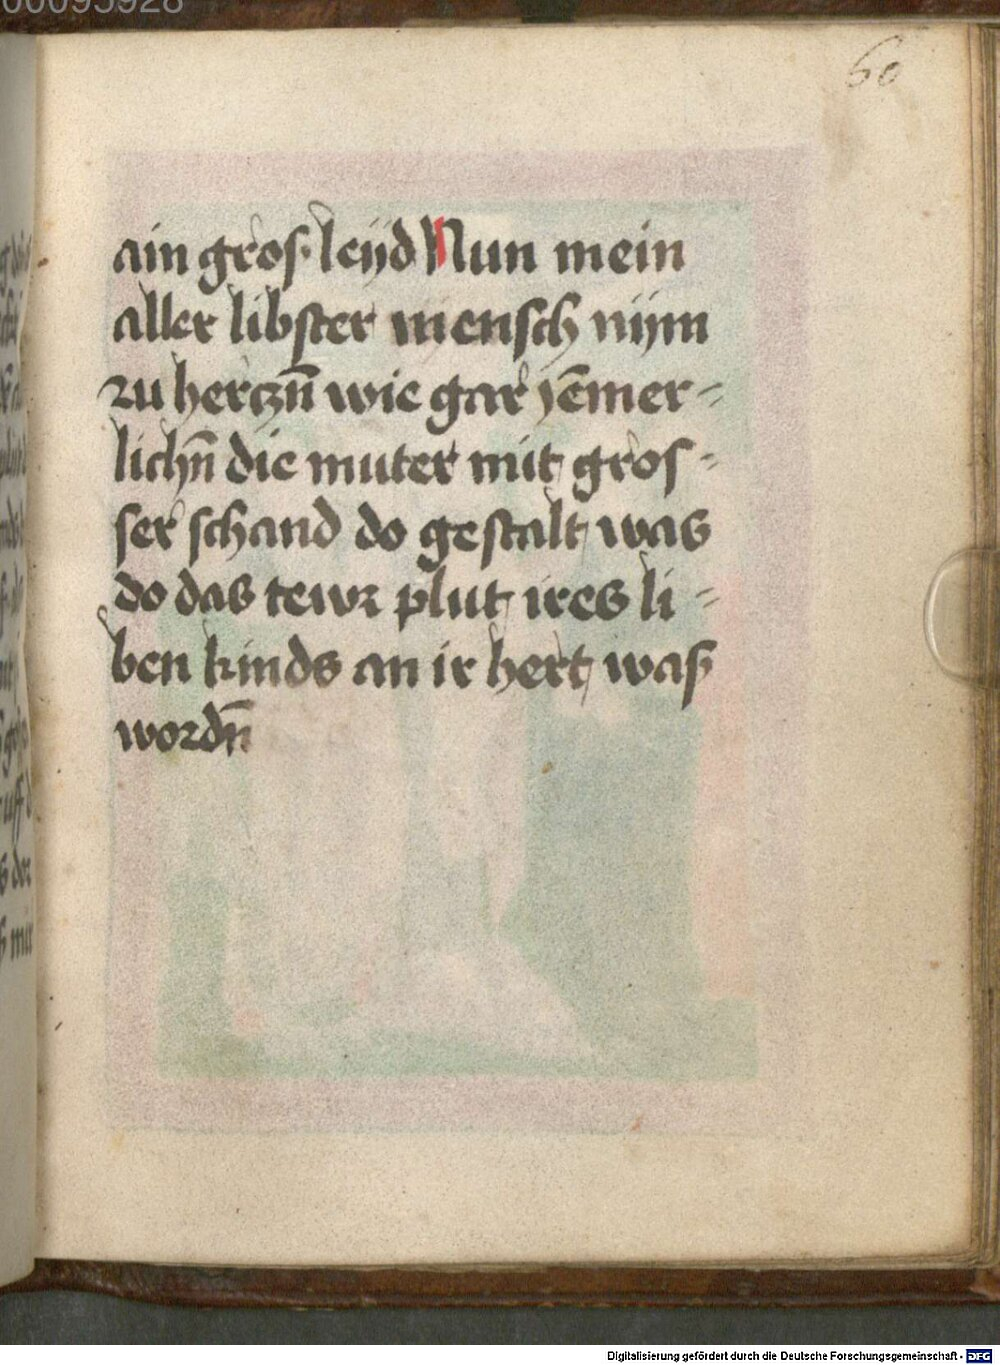 00095928
60
ain gros leyd Nun mein
aller libster mensch nÿm
zu herczn̄ wie gar yēmer=
lichn̄ die muter mit gros=
ser schand do gestalt was
do das tewr plut ires li=
ben kinds an ir hert waß
wordn̄
Digitalisierung gefördert durch die Deutsche Forschungsgemeinschaft - DFG